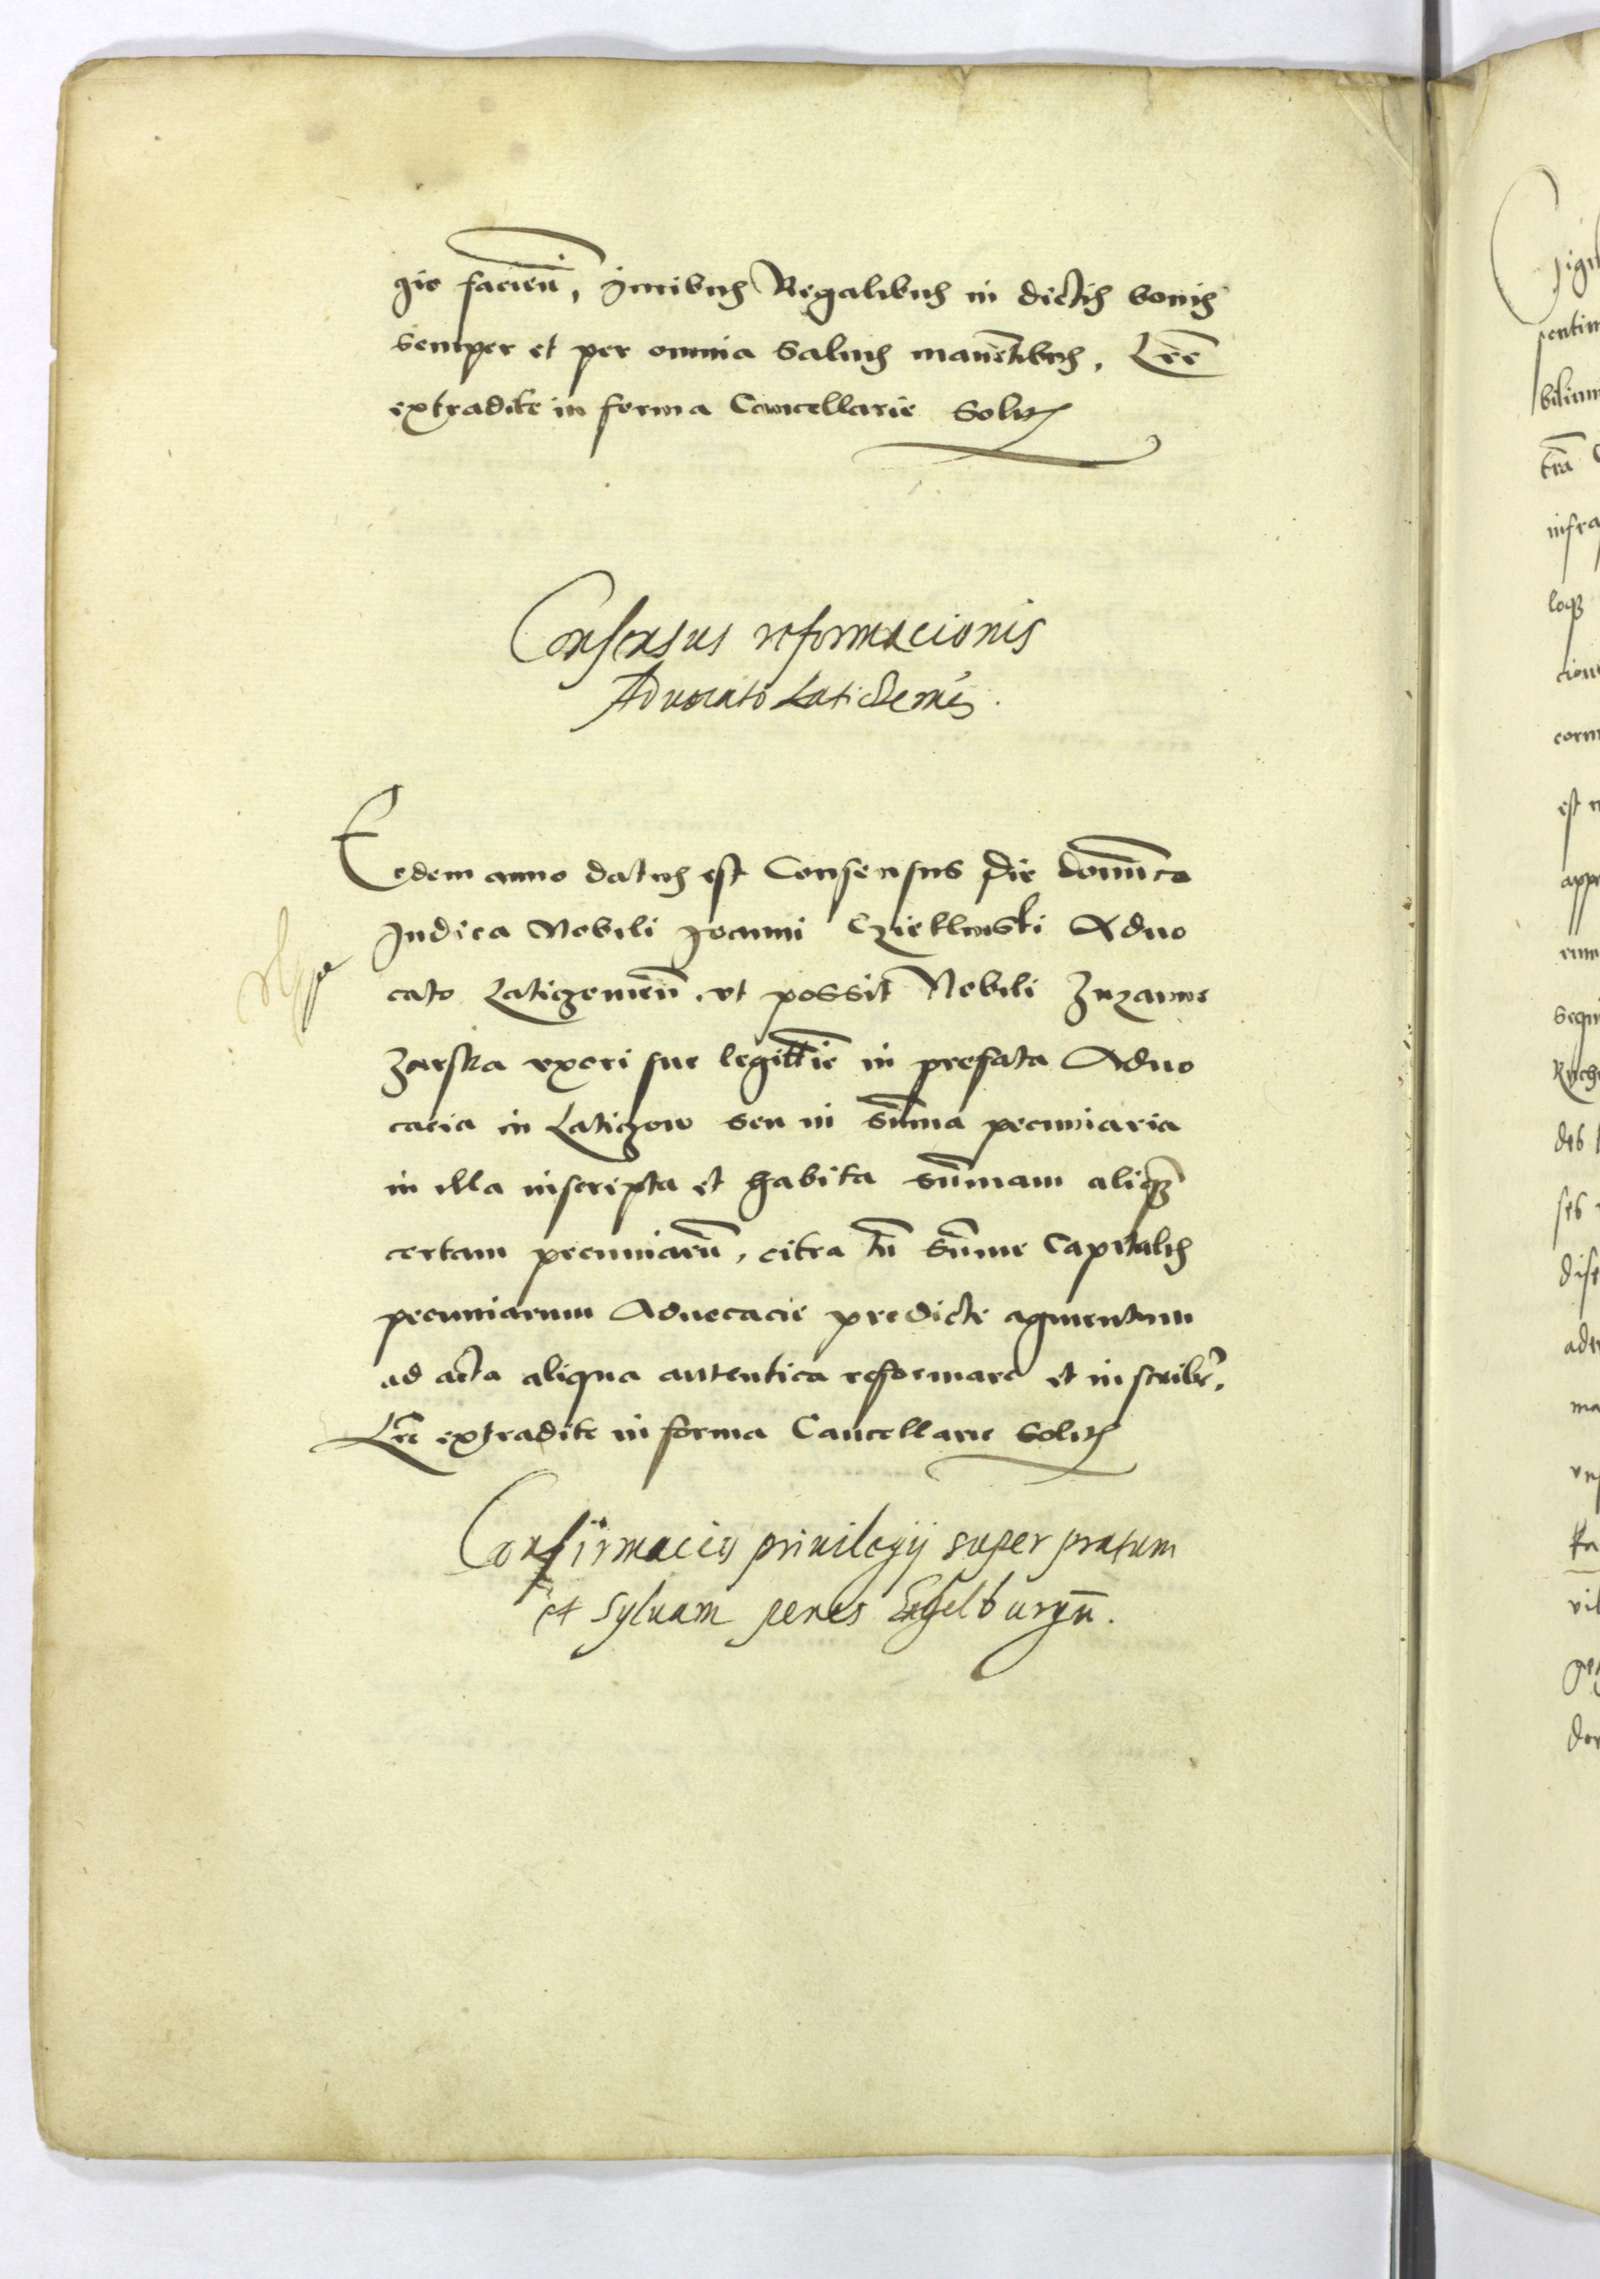 gie facien̄, Juribus Regalibus in dictis bonis
semper et per omnia saluis manēntibus. Lrē
extradite in forma Cancellarie Solita
Consensus reformacionis
Aduocato Laticzemēs.
Eodem anno datus est Consensus die Domīnca
Judica Nobili Joanni Aduo
cato Laticzouien̄. vt possit Nobili Zuzanne
Zarska vxori sue legittīe in prefata Aduo
cacia in Laticzow seu in Sūmma pecuniaria
in illa inscripta et habita sūmmam aliq̄ȝ
certam pecuniarū, citra tn̄ Sūmme Capitalis
pecuniarum Aduocacie predicte agmentum
ad acta aliqua autentica reformare et inscribr̄.
Lrē extradite in forma Cancellarie Solita
Confirmacio priuilegij super pratum
et syluam penes Engelburgū.
pentim
bilium
tra
infra
est
Ka